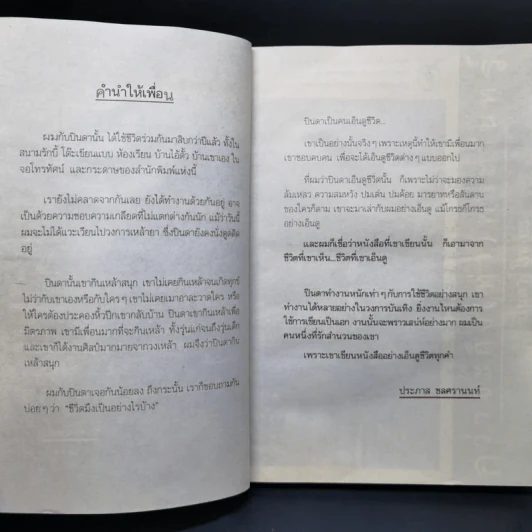 คำนำให้เพื่อน
ผมกับปินดานั้น ได้ใช้ชีวิตร่วมกันมาสิบกว่าปีแล้ว ทั้งใน
สนามรักบี้ โต๊ะเขียนแบบ ห้องเรียน บ้านไอ้ตั้ว บ้านเขาเอง ใน
จอโทรทัศน์ และกระดาษของสำนักพิมพ์แห่งนี้
เรายังไม่คลาดจากกันเลย ยังได้ทำงานด้วยกันอยู่ อาจ
เป็นด้วยความชอบความเกลียดที่ไม่แตกต่างกันนัก แม้ว่าวันนี้
ผมจะไม่ได้แวะเวียนไปวงการเหล้ายา ซึ่งปินดายังคงนั่งคูดติด
อยู่
ปินดานั้นเขากินเหล้าสนุก เขาไม่เคยกินเหล้าจนเกิดทุกข์
ไม่ว่ากับเขาเองหรือกับใครๆ เขาไม่เคยเมาอาละวาดใคร หรือ
ให้ใครต้องประคองหิ้วปีกเขากลับบ้าน ปินดาเขากินเหล้าเพื่อ
มิตรภาพ เขามีเพื่อนมากที่จะกินเหล้า ทั้งรุ่นแก่จนถึงรุ่นเด็ก
และเขาก็ได้งานศิลป์มากมายจากวงเหล้า ผมจึงว่าปินดากิน
เหล้าสนุก
ผมกับปินดาเจอกันน้อยลง ถึงกระนั้น เราก็ชอบถามกัน
บ่อยๆ ว่า “ชีวิตมึงเป็นอย่างไรบ้าง”
ปินดาเป็นคนเอ็นดูชีวิต...
เขาเป็นอย่างนั้นจริงๆ เพราะเหตุนี้ทำให้เขามีเพื่อนมาก
เขาชอบคบคน เพื่อจะได้เอ็นดูชีวิตต่างๆ แบบออกไป
ที่ผมว่าปินดาเอ็นดูชีวิตนั้น ก็เพราะไม่ว่าจะมองความ
ล้มเหลว ความสมหวัง ปมเด่น ปมด้อย มารยาทหรือสันดาน
ของใครก็ตาม เขาจะมาเล่ากับผมอย่างเอ็นดู แม้โกรธก็โกรธ
อย่างเอ็นดู
และผมก็เชื่อว่าหนังสือที่เขาเขียนนั้น ก็เอามาจาก
ชีวิตที่เขาเห็น...ชีวิตที่เขาเอ็นดู
ปินดาทำงานหนักเท่าๆ กับการใช้ชีวิตอย่างสนุก เขา
ทำงานได้หลายอย่างในวงการบันเทิง ยิ่งงานไหนต้องการ
ใช้การเขียนเป็นเอก งานนั้นจะพราวเสน่ห์อย่างมาก ผมเป็น
คนหนึ่งที่รักสำนวนของเขา
เพราะเขาเขียนหนังสืออย่างเอ็นดูชีวิตทุกคำ
ประภาส ชลศรานนท์